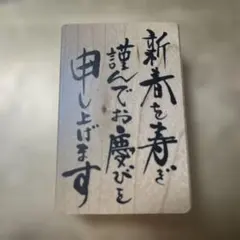 新春を寿ぎ
謹んでお慶びを
申し上げます